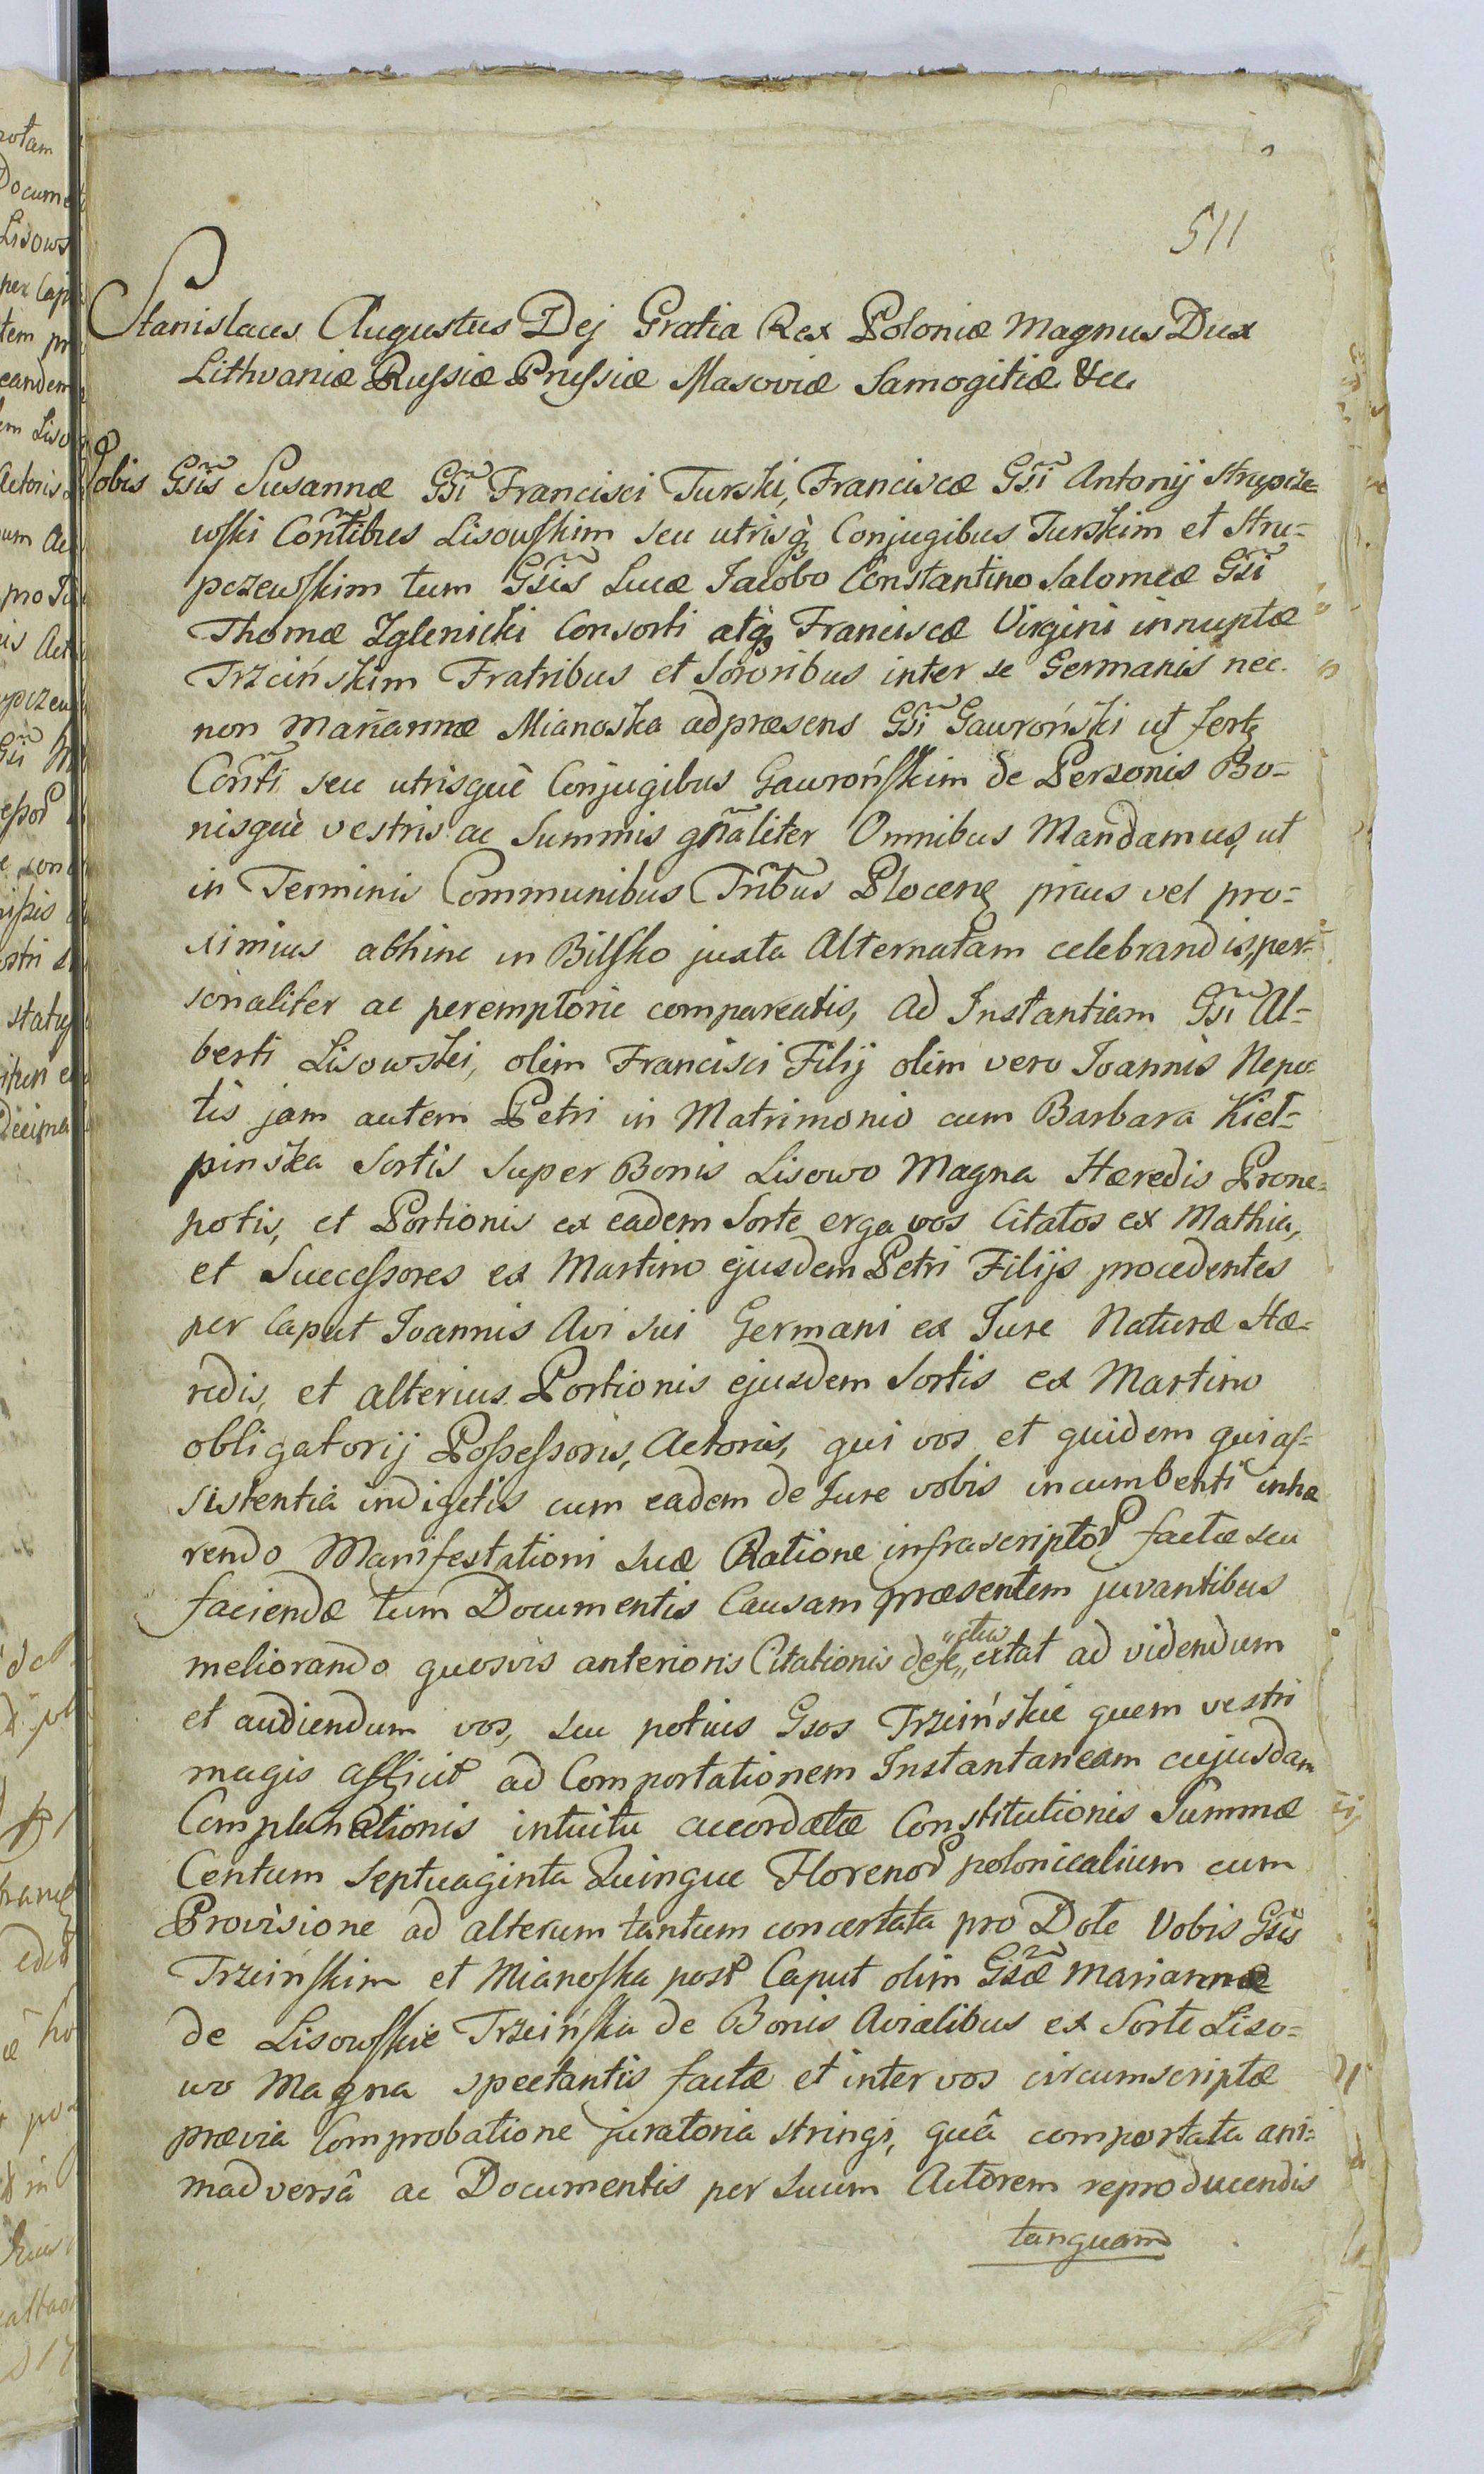 511
Stanislaus Augustus Dej Gratia Rex Poloniæ Magnus Dux
Lithvaniæ Russiæ Prussiæ Masoviæ Samogitiæ &cc
Vobis Gsis Susannæ Gsi Francisci Turski, Franciscæ Gsi Antonij Strupcze=
wski Contibus Lisowskim seu utrisq, Conjugibus Turskim et Stru=
pczewskim tum Gsis Lucæ Jacobo Constantino Salomeæ Gsi
Thomæ Zglenicki Consorti atq, Franciscæ Virgini innuptæ
Trzcińskim Fratribus et Sororibus inter se Germanis nec
non Mariannæ Mianoska adpræsens Gsi Gawroński ut fert,
Conti seu utrisquè Conjugibus Gawrońskim de Personis Bo=
nisquè vestris ac Summis gnãliter Omnibus Mandamus, ut
in Terminis Communibus Tribus Plocen, prius vel pro=
ximius abhinc in Bilsko juxta Alternatam celebrandis, per=
sonaliter ac peremptorie compareatis, Ad Instantiam Gsi Al=
berti Lisowski, olim Francisci Filij olim vero Joannis Nepo=
tis jam autem Petri in Matrimonio cum Barbara Kieł=
pinska Sortis Super Bonis Lisowo Magna Hæredis Prone=
potis, et Portionis ex eadem Sorte erga vos Citatos ex Mathia,
et Successores ex Martino ejusdem Petri Filijs procedentes
per Caput Joannis Avi sui Germani ex Jure Naturæ Hæ=
redis, et alterius Portionis ejusdem Sortis ex Martino
obligatorij Possessoris, Actoris, qui vos et quidem qui as=
sistentiâ indigetis cum eadem de Jure vobis incumbenti inhæ
rendo Manifestationi suæ Ratione infrascriptor factæ seu
faciendæ tum Documentis Causam præsentem juvantibus
meliorando quosvis anterioris Citationis defe"ctus" citat ad videndum
et audiendum vos, seu potius Gsos Trzcińskie quem vestri
magis afficit ad Comportationem Instantaneam cujusdam
Complanationis intuitu accordatæ Constitutionis Summæ
Centum Septuaginta Quinque Florenor polonicalium cum
Provisione ad alterum tantum concertata pro Dote Vobis Gsis
Trzcińskim et Mianoska post Caput olim Gsæ Mariannæ
de Lisowskie Trzcińska de Bonis Avialibus ex Sorte Liso=
wo Magna spectantis factæ et inter vos circumscriptæ
prævia Comprobatione juratoria stringi, quâ comportata ani=
madversâ ac Documentis per suum Actorem reproducendis
tanquam